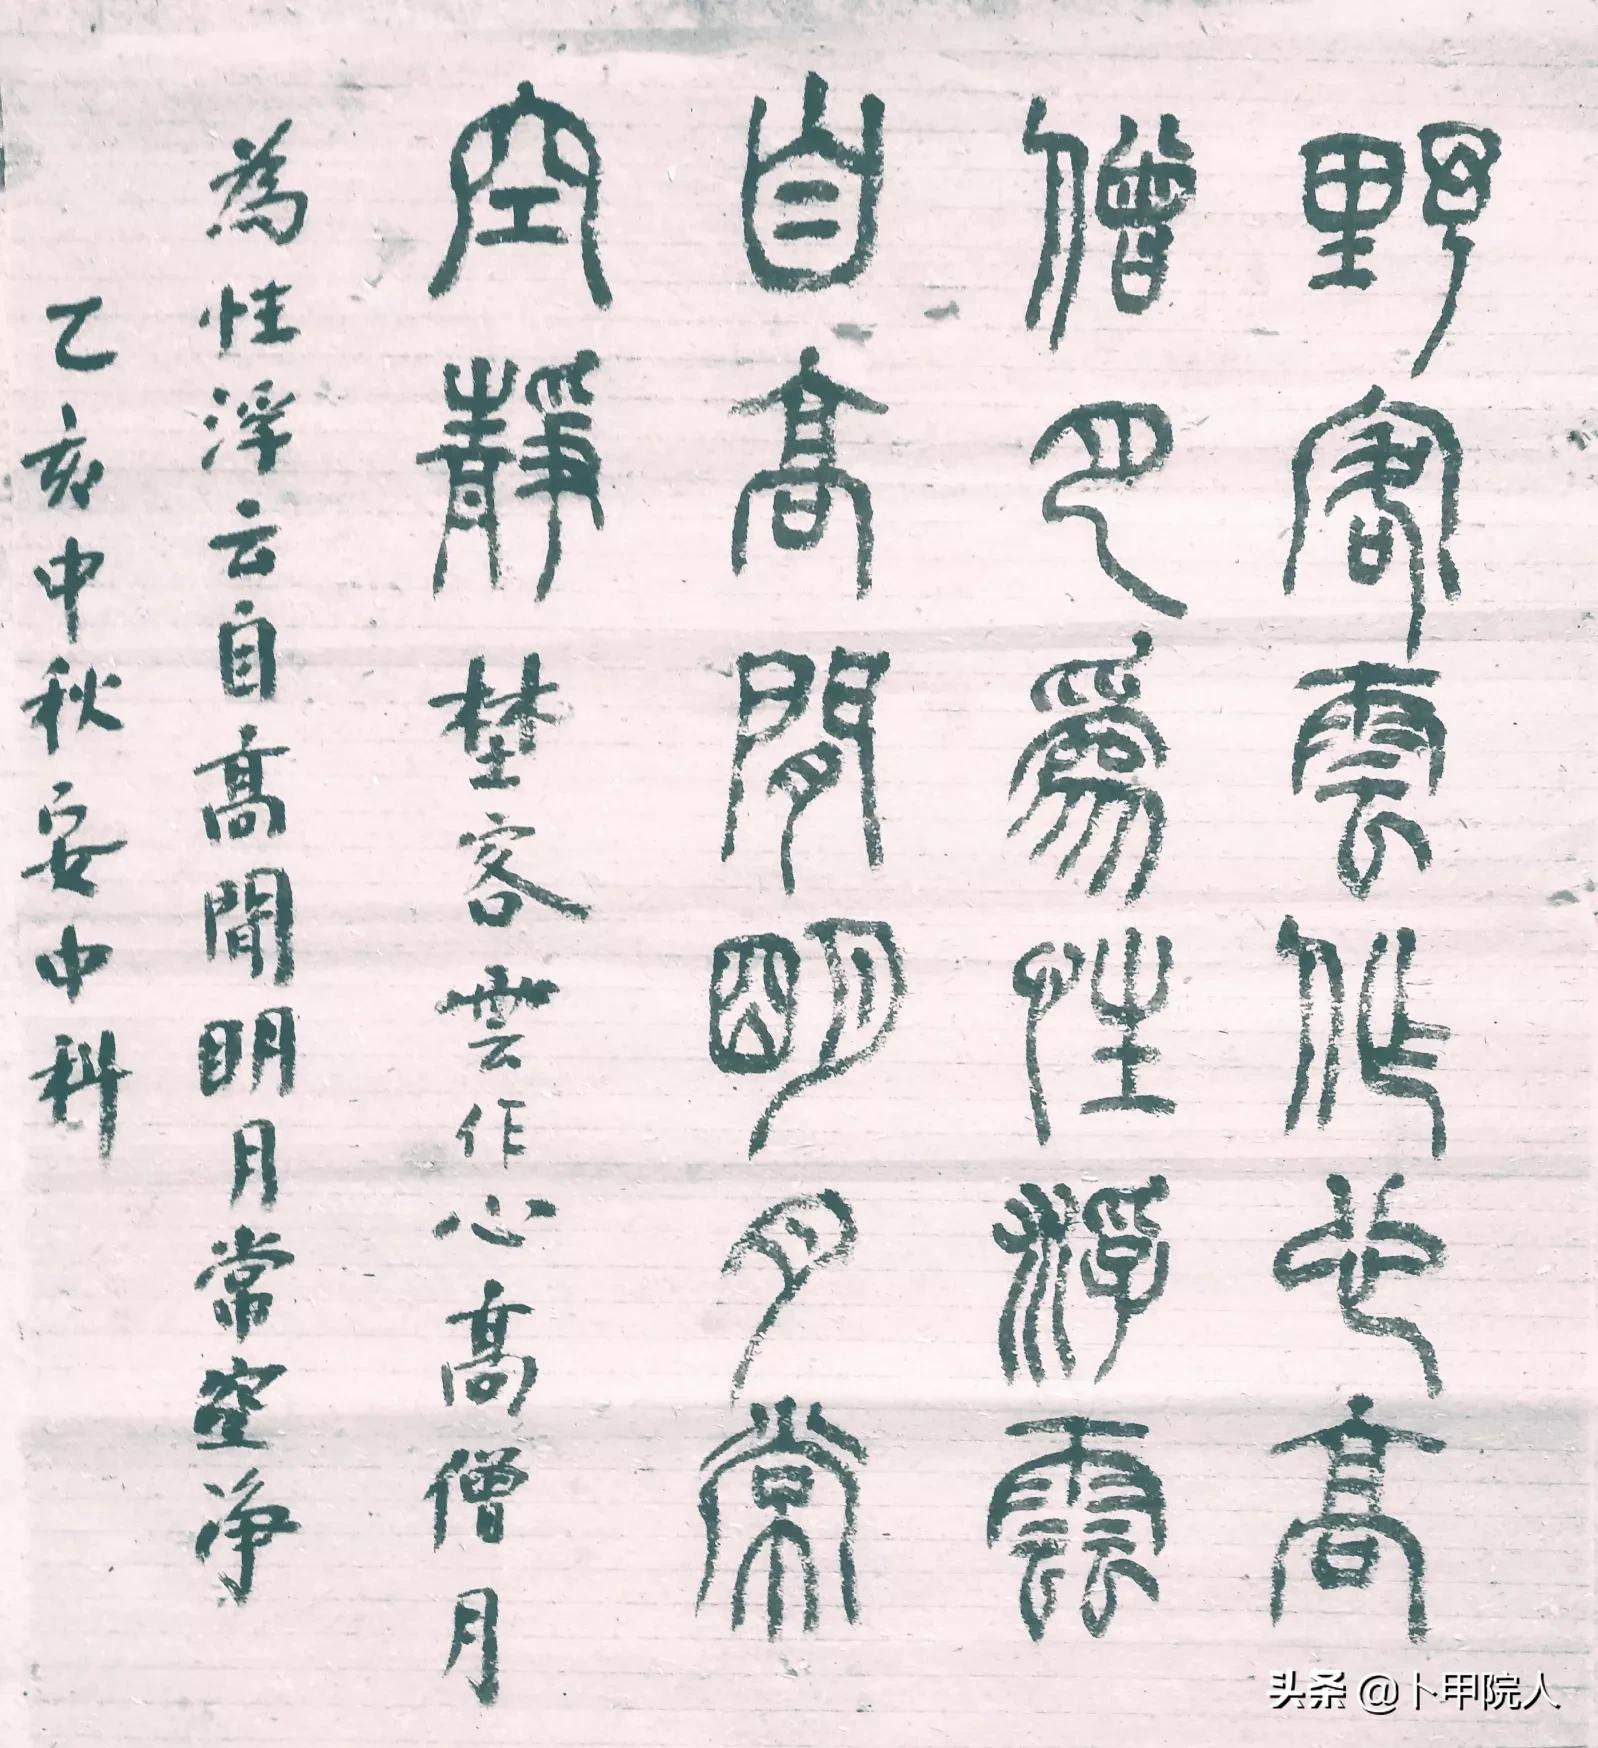 野客雲作心高
僧月為性浮雲
自高閒明月常
空靜埜客雲作心高僧月
為性浮云自高閒明月常空净
乙亥中秋安中科
头条 @卜甲院人